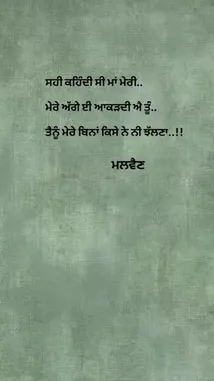 ਸਹੀ ਕਹਿੰਦੀ ਸੀ ਮਾਂ ਮੇਰੀ..
ਮੇਰੇ ਅੱਗੇ ਈ ਆਕੜਦੀ ਐ ਤੂੰ..
ਤੈਨੂੰ ਮੇਰੇ ਬਿਨਾਂ ਕਿਸੇ ਨੇ ਨੀ ਝੱਲਣਾ..!!
ਮਲਵੈਣ